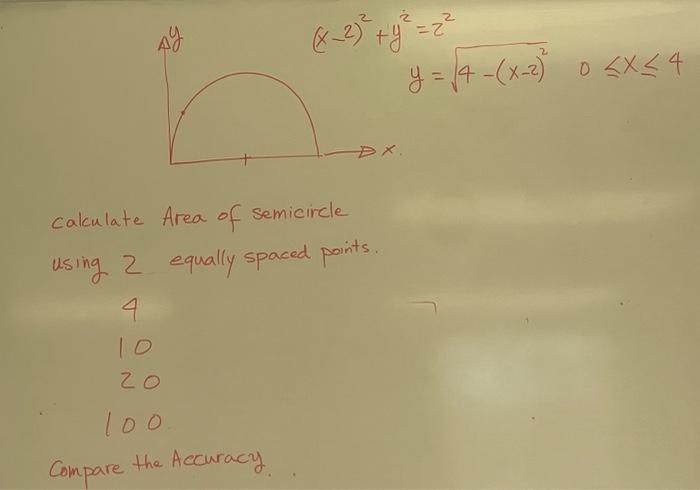 y
(x-2)² + y² = 2²
y = √4-(x-2)² 0 ≤ x ≤ 4
x.
calculate Area of semicircle
using 2 equally spaced points.
4
10
20
100
Compare the Accuracy.